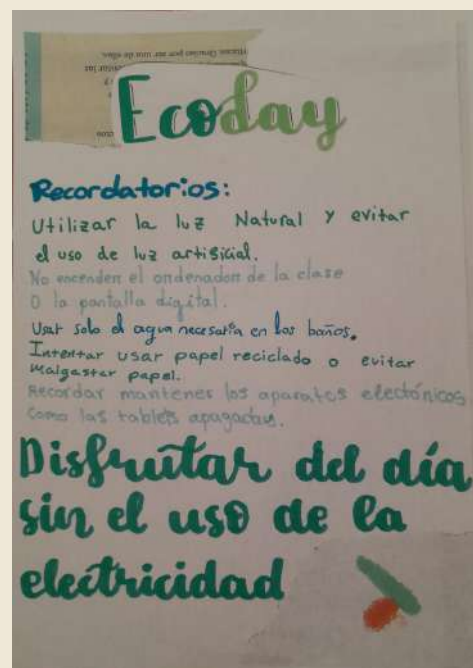 Hacemos Gracias por ser uno de ellos.
Ecoday
Recordatorios:
Utilizar la luz Natural y evitar
el uso de luz artificial.
No encender el ordenador de la clase
O la pantalla digital.
Usar solo el agua necesaria en los baños.
Intentar usar papel reciclado o evitar
malgastar papel.
Recordar mantener los aparatos electónicos
Como las tablets apagadas.
Disfrutar del día
sin el uso de la
electricidad